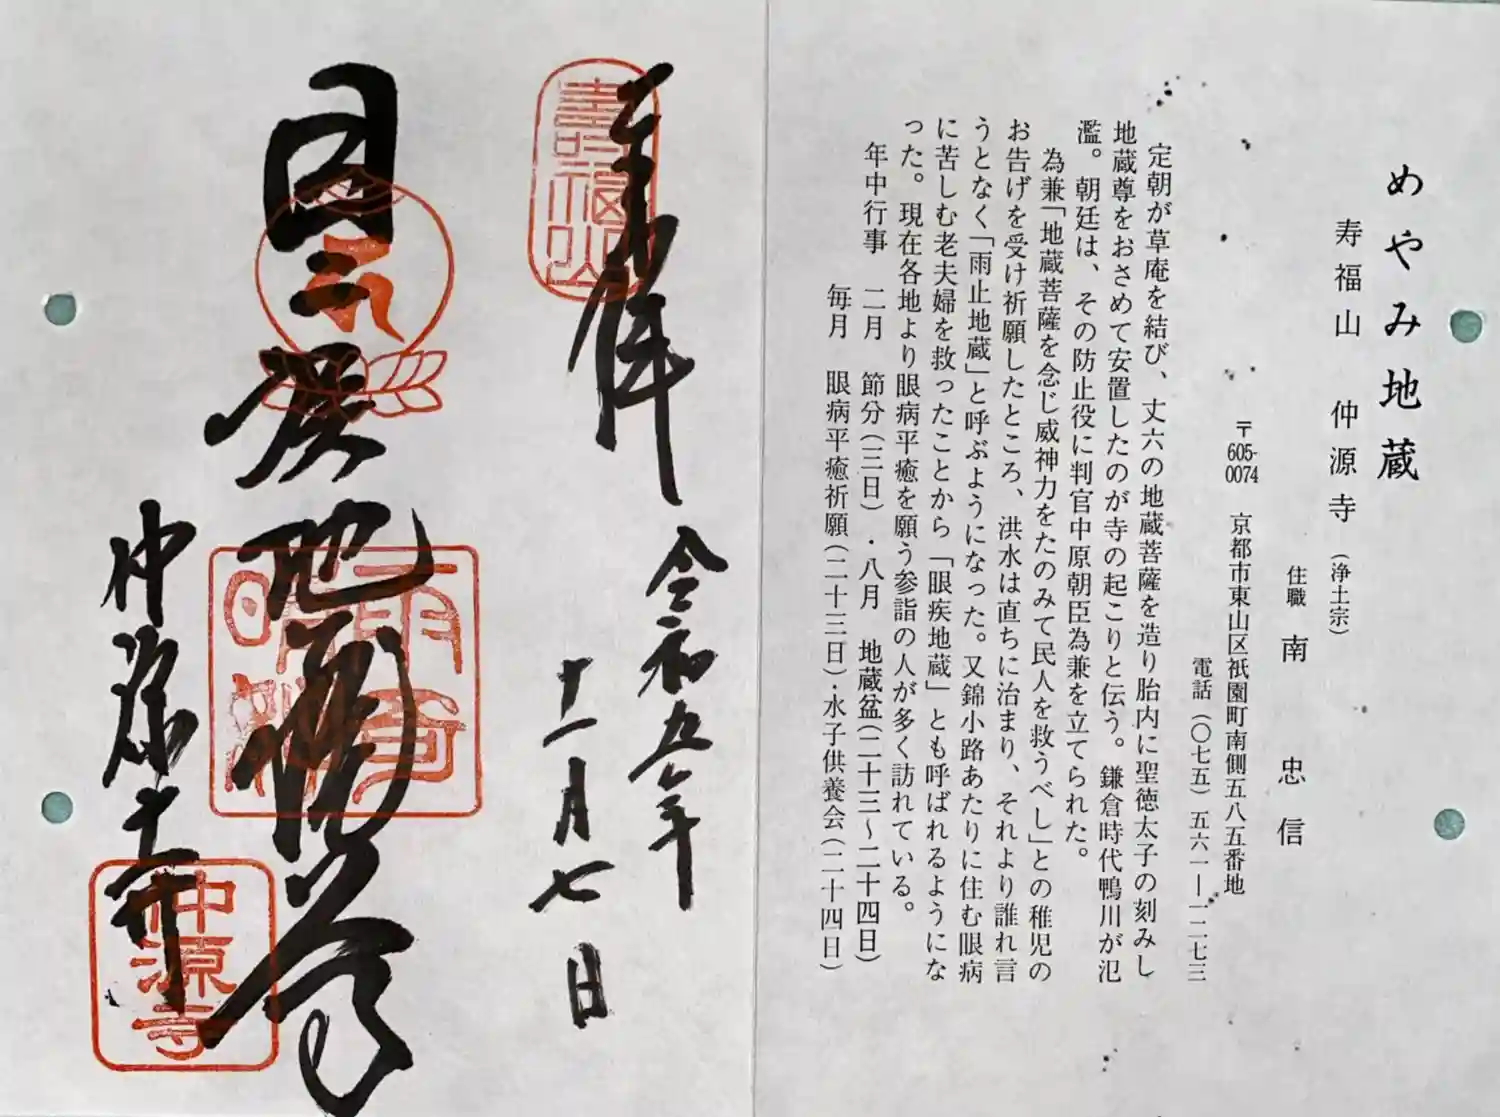 めやみ地蔵
寿福山 仲源寺（浄土宗）
住職 南 忠信
〒605-0074 京都市東山区祇園町南側五八五番地
電話（〇七五）五六一ー一二七三
定朝が草庵を結び、丈六の地蔵菩薩を造り胎内に聖徳太子の刻みし
地蔵尊をおさめて安置したのが寺の起こりと伝う。鎌倉時代鴨川が氾
濫。朝廷は、その防止役に判官中原朝臣為兼を立てられた。
為兼「地蔵菩薩を念じ威神力をたのみて民人を救うべし」との稚児の
お告げを受け祈願したところ、洪水は直ちに治まり、それより誰れ言
うとなく「雨止地蔵」と呼ぶようになった。又錦小路あたりに住む眼病
に苦しむ老夫婦を救ったことから「眼疾地蔵」とも呼ばれるようにな
った。現在各地より眼病平癒を願う参詣の人が多く訪れている。
年中行事 二月 節分（三日）・八月 地蔵盆（二十三～二十四日）
毎月 眼病平癒祈願（二十三日）・水子供養会（二十四日）
奉拝
壽福山
令和五年
十一月七日
地蔵尊
雨奇
晴好
仲源寺
仲源寺